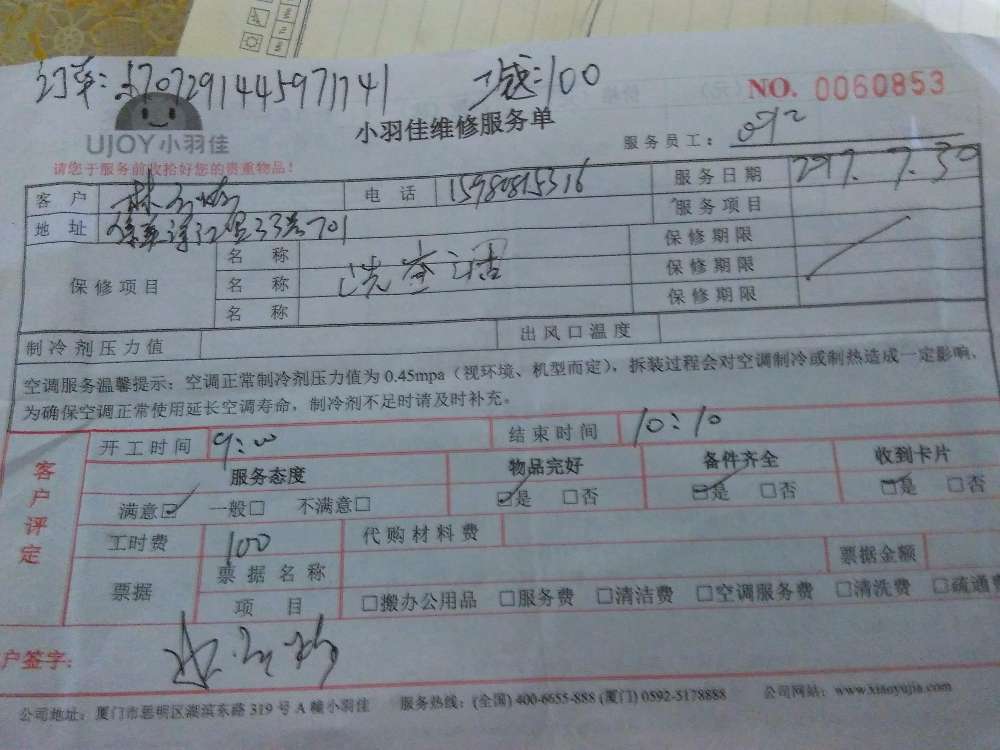 订单:1707291445971741 :100
NO. 0060853
UJOY小羽佳
小羽佳维修服务单
服务员工: 092
请您于服务前收拾好您的贵重物品!
客户 林 电话 15980815316 服务日期 2017.7.30
地址 33号701 服务项目
保修项目 名称 洗查活 保修期限
名称 保修期限
名称 保修期限
制冷剂压力值 出风口温度
空调服务温馨提示:空调正常制冷剂压力值为0.45mpa(视环境、机型而定),拆装过程会对空调制冷或制热造成一定影响,
为确保空调正常使用延长空调寿命,制冷剂不足时请及时补充。
客户评定
开工时间 9:00 结束时间 10:10
服务态度 物品完好 备件齐全 收到卡片
满意☑ 一般□ 不满意□ ☑是 □否 ☑是 □否 ☑是 □否
工时费 100 代购材料费
票据 票据名称 票据金额
项目 □搬办公用品 □服务费 □清洁费 □空调服务费 □清洗费 □疏通费
户签字:
公司地址:厦门市思明区湖滨东路319号A幢小羽佳 服务热线:(全国) 400-6655-888 (厦门) 0592-5178888 公司网站:www.xiaoyujia.com